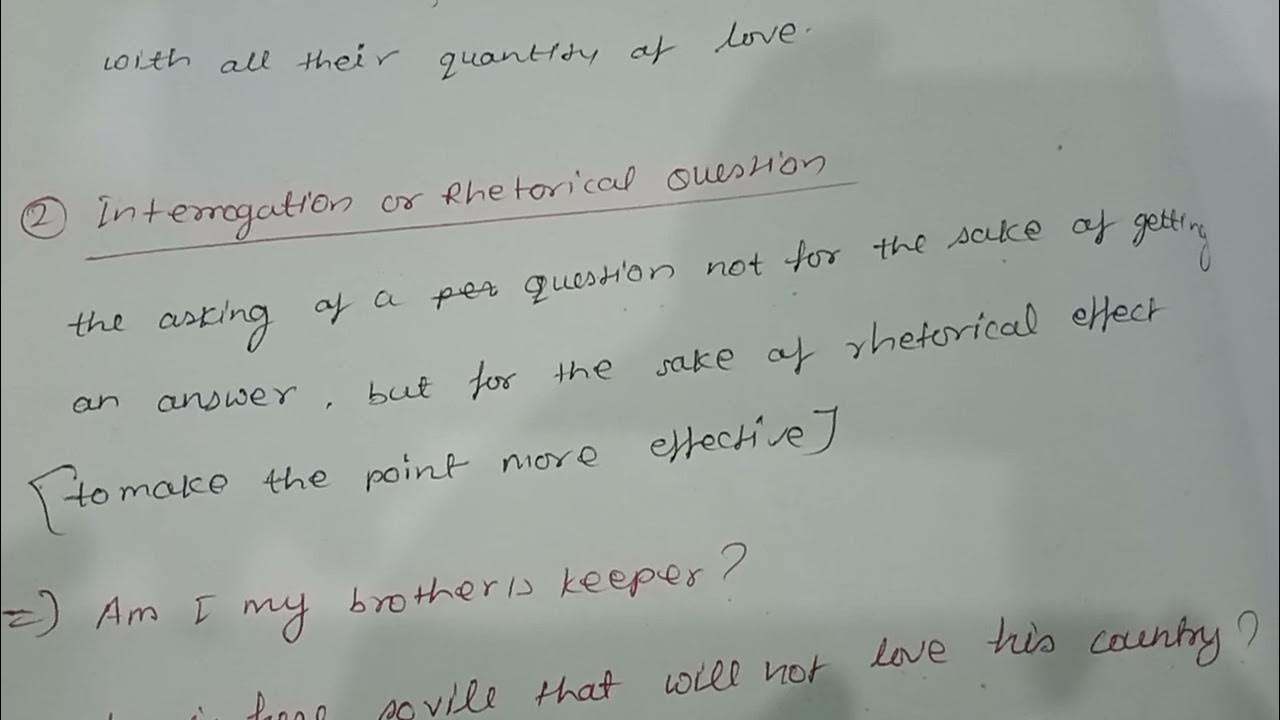 with all their quantity of love.
② Interrogation or Rhetorical Question
the asking of a per question not for the sake of getting
an answer, but for the sake of rhetorical effect
[to make the point more effective]
=) Am I my brother's keeper?
here so vile that will not love his country?